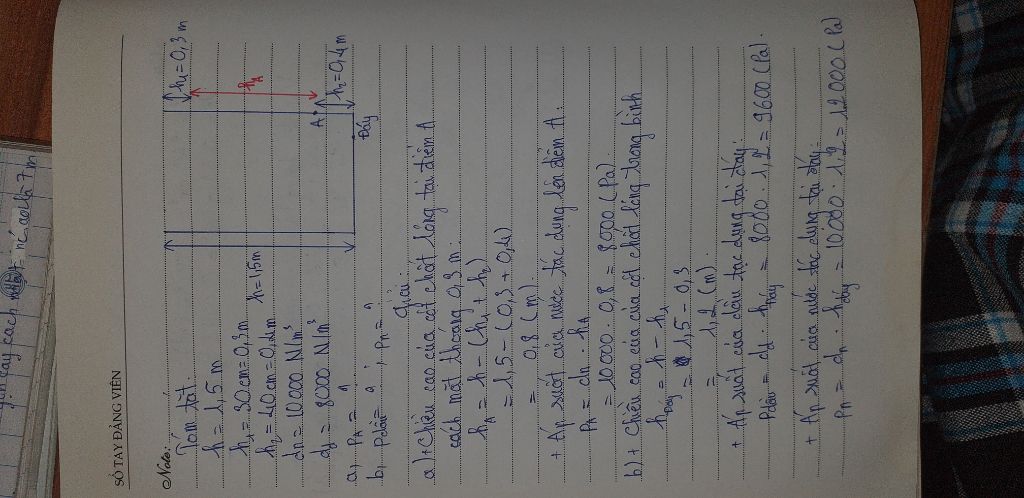 SỔ TAY ĐẢNG VIÊN
Note:
Tóm tắt:
h = 1,5 m
h₁ = 30 cm = 0,3 m
h₂ = 40 cm = 0,4 m
h = 1,5m
dn = 10000 N/m³
dd = 8000 N/m³
a, PA = ?
b, Pdầu = ? ; Pn = ?
h₁ = 0,3 m
hA
A
h₂ = 0,4 m
Đáy
Giải:
a) + Chiều cao của cột chất lỏng tại điểm A
cách mặt thoáng 0,3 m:
hA = h - (h₁ + h₂)
= 1,5 - (0,3 + 0,4)
= 0,8 (m)
+ Áp suất của nước tác dụng lên điểm A:
PA = dn . hA
= 10000 . 0,8 = 8000 (Pa)
b) + Chiều cao của của cột chất lỏng trong bình
hđáy = h - h₁
= 1,5 - 0,3
= 1,2 (m)
+ Áp suất của dầu tác dụng tại đáy:
Pdầu = dd . hđáy = 8000 . 1,2 = 9600 (Pa).
+ Áp suất của nước tác dụng tại đáy:
Pn = dn . hđáy = 10000 . 1,2 = 12 000 (Pa)
cách
7 m